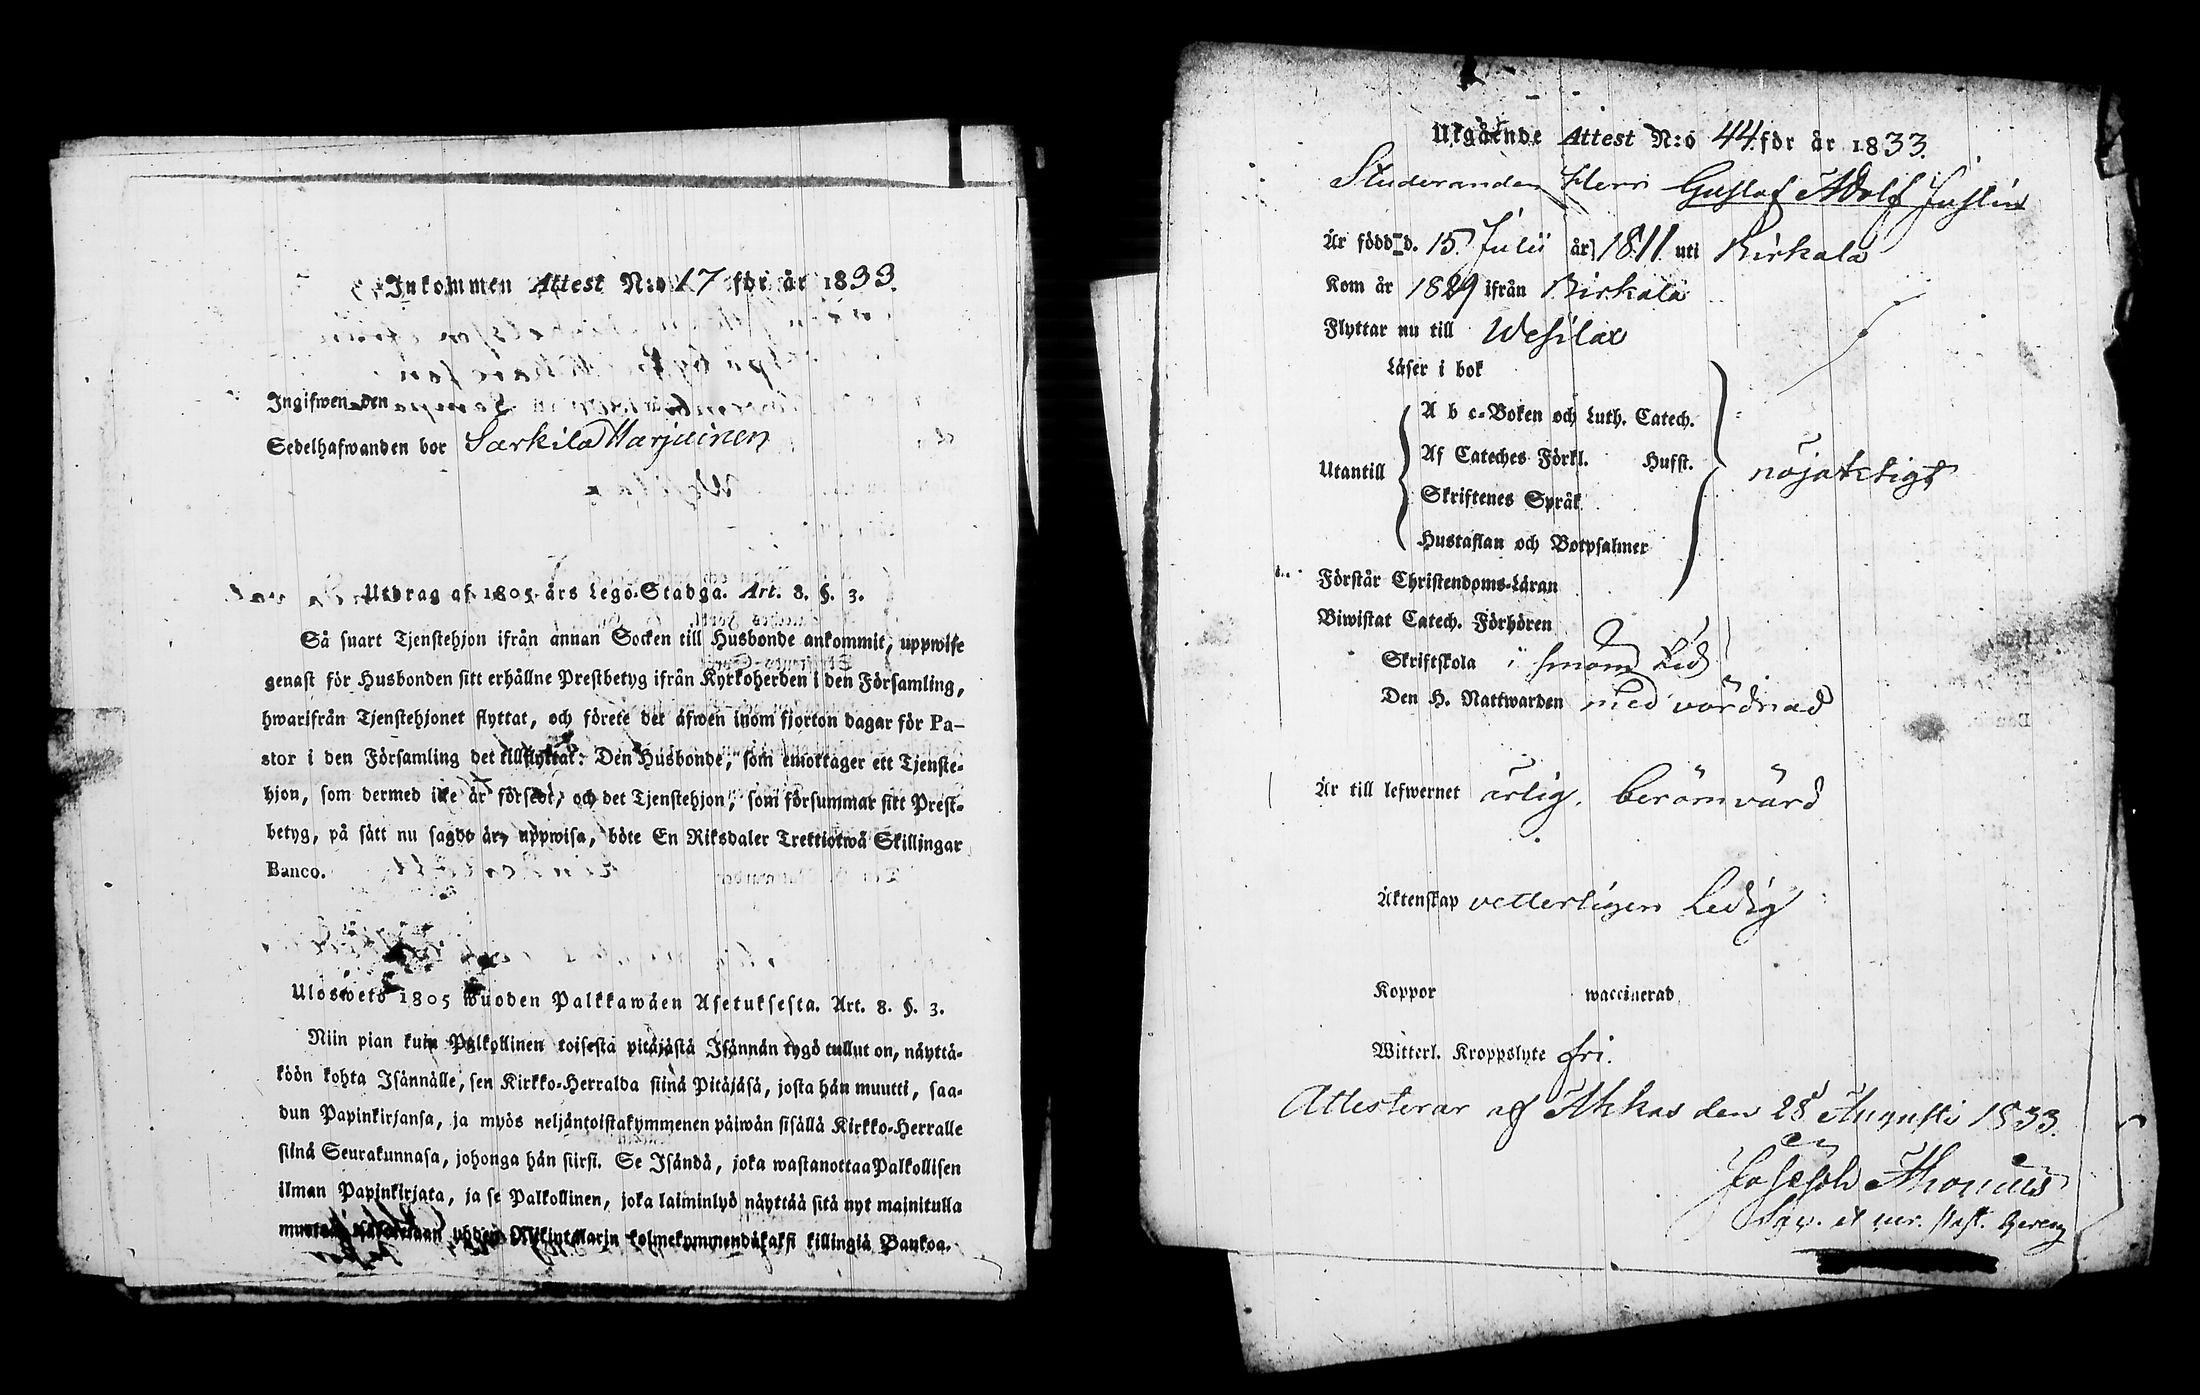 Inkommen Attest N:o 17 för år 1833.
Ingifwen den
Sedelhafwanden bor Särkilä Marjuinen
Utdrag af 1805 års Lego-Stadga. Art. 8. §. 3.
Så snart Tjenstehjon ifrån annan Socken till Husbonde ankommit, uppwise
genast för Husbonden sitt erhållne Prestbetyg ifrån Kyrkoherden i den Församling,
hwarifrån Tjenstehjonet flyttat, och förete det äfwen inom fjorton dagar för Pa-
stor i den Församling det tillflyttat: Den Husbonde, som emottager ett Tjenste-
hjon, som dermed icke är försedt, och det Tjenstehjon, som försummar sitt Prest-
betyg, på sätt nu sagdt är, uppwisa, böte En Riksdaler Trettiotwå Skillingar
Banco.
Uloswetö 1805 wuoden Palkkawäen Asetuksesta. Art. 8. §. 3.
Niin pian kuin Palkollinen toisesta pitäjästä Isännän tygö tullut on, näyttä-
köön kohta Isännälle, sen Kirkko-Herralda siinä Pitäjäsä, josta hän muutti, saa-
dun Papinkirjansa, ja myös neljäntoistakymmenen päiwän sisällä Kirkko-Herralle
siinä Seurakunnasa, johonga hän siirsi. Se Isändä, joka wastanottaa Palkollisen
ilman Papinkirjata, ja se Palkollinen, joka laiminlyö näyttää sitä nyt mainitulla
yhden Rikintalarin kolmekymmendäkaksi killingiä Bankoa.
Utgående Attest N:o 44. för år 1833.
Studeranden Herr Gustaf Adolf Justin
Är född d. 15 Julii år 1811 uti Birkala
Kom år 1829 ifrån Birkala
Flyttar nu till Wesilax
Läser i bok
A b c-Boken och Luth. Catech.
Af Cateches Förkl. Hufst.
Utantill
nöjaktigt
Skriftenes Språk
Hustaflan och Botpsalmer
Förstår Christendoms-Läran
Biwistat Catech. Förhören
Skriftskola i sinom tid
Den H. Nattwarden med vördnad
Är till lefwernet ärlig, berömvärd
Äktenskap vetterligen Ledig
Koppor waccinerad
Witterl. Kroppslyte fri.
Attesterar af Akkas den 28 Augusti 1833.
Joseph